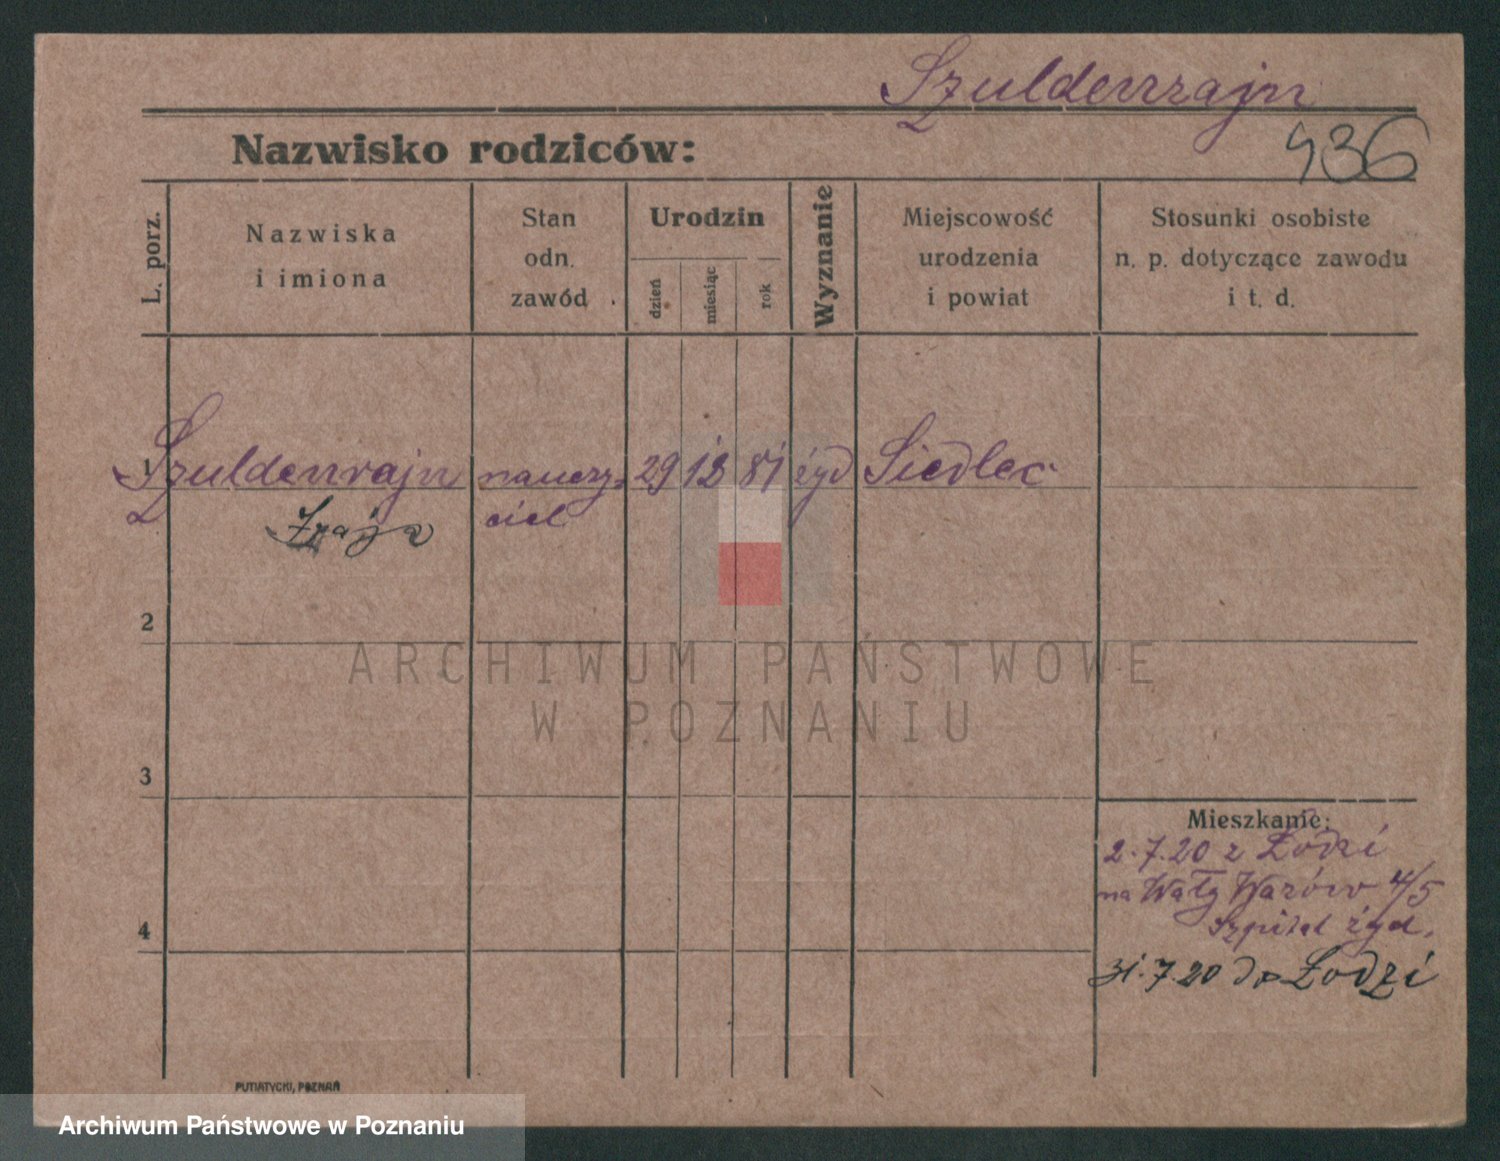 Szuldenrajn
Nazwisko rodziców:
436
L. porz.
Nazwiska
i imiona
Stan
odn.
zawód
Urodzin
dzień
miesiąc
rok
Wyznanie
Miejscowość
urodzenia
i powiat
Stosunki osobiste
n. p. dotyczące zawodu
i t. d.
1 Szuldenrajn nauczy- 29 12 81 żyd Siedlec
Szaja ciel
2
ARCHIWUM PAŃSTWOWE
W POZNANIU
3
Mieszkanie:
2.7.20 z Łodzi
na Wały Wazów 4/5
Szpital żyd.
4
31.7.20 do Łodzi
PUTIATYCKI, POZNAŃ
Archiwum Państwowe w Poznaniu